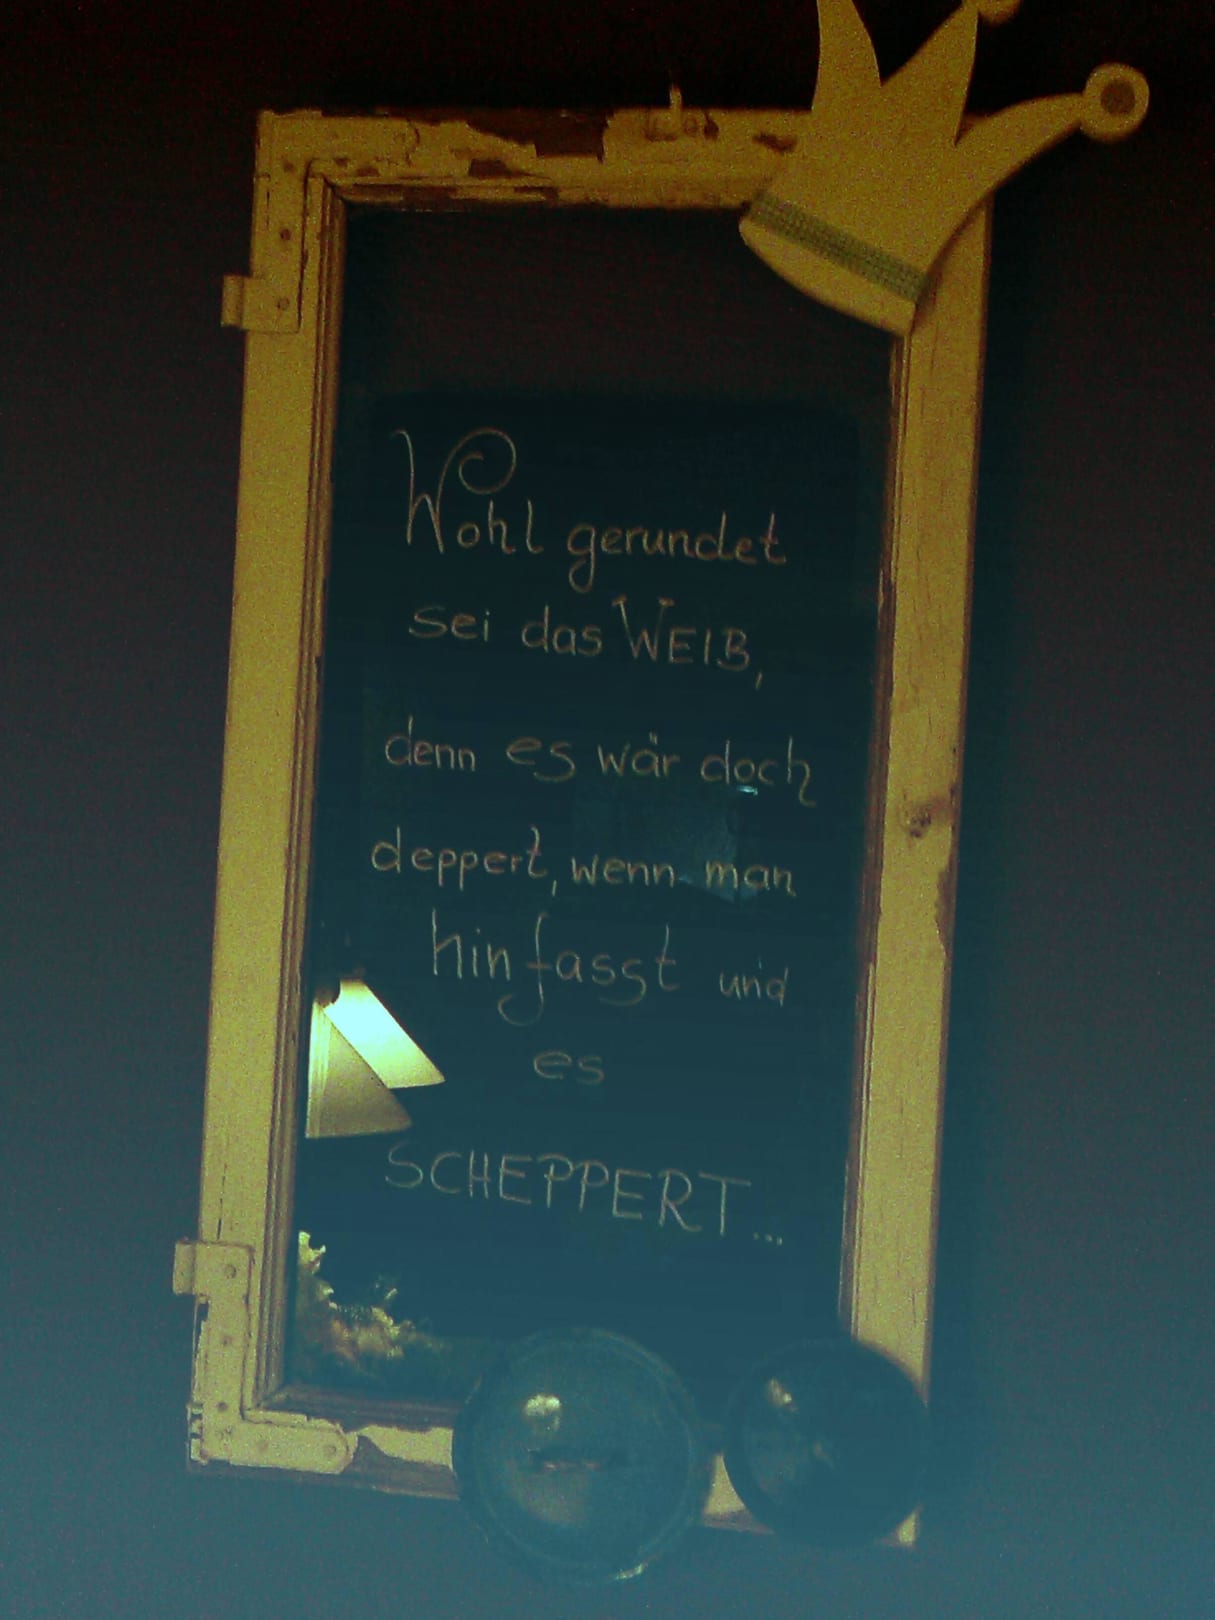 Wohl gerundet
sei das WEIB,
denn es wär doch
deppert, wenn man
hinfasst und
es
SCHEPPERT...